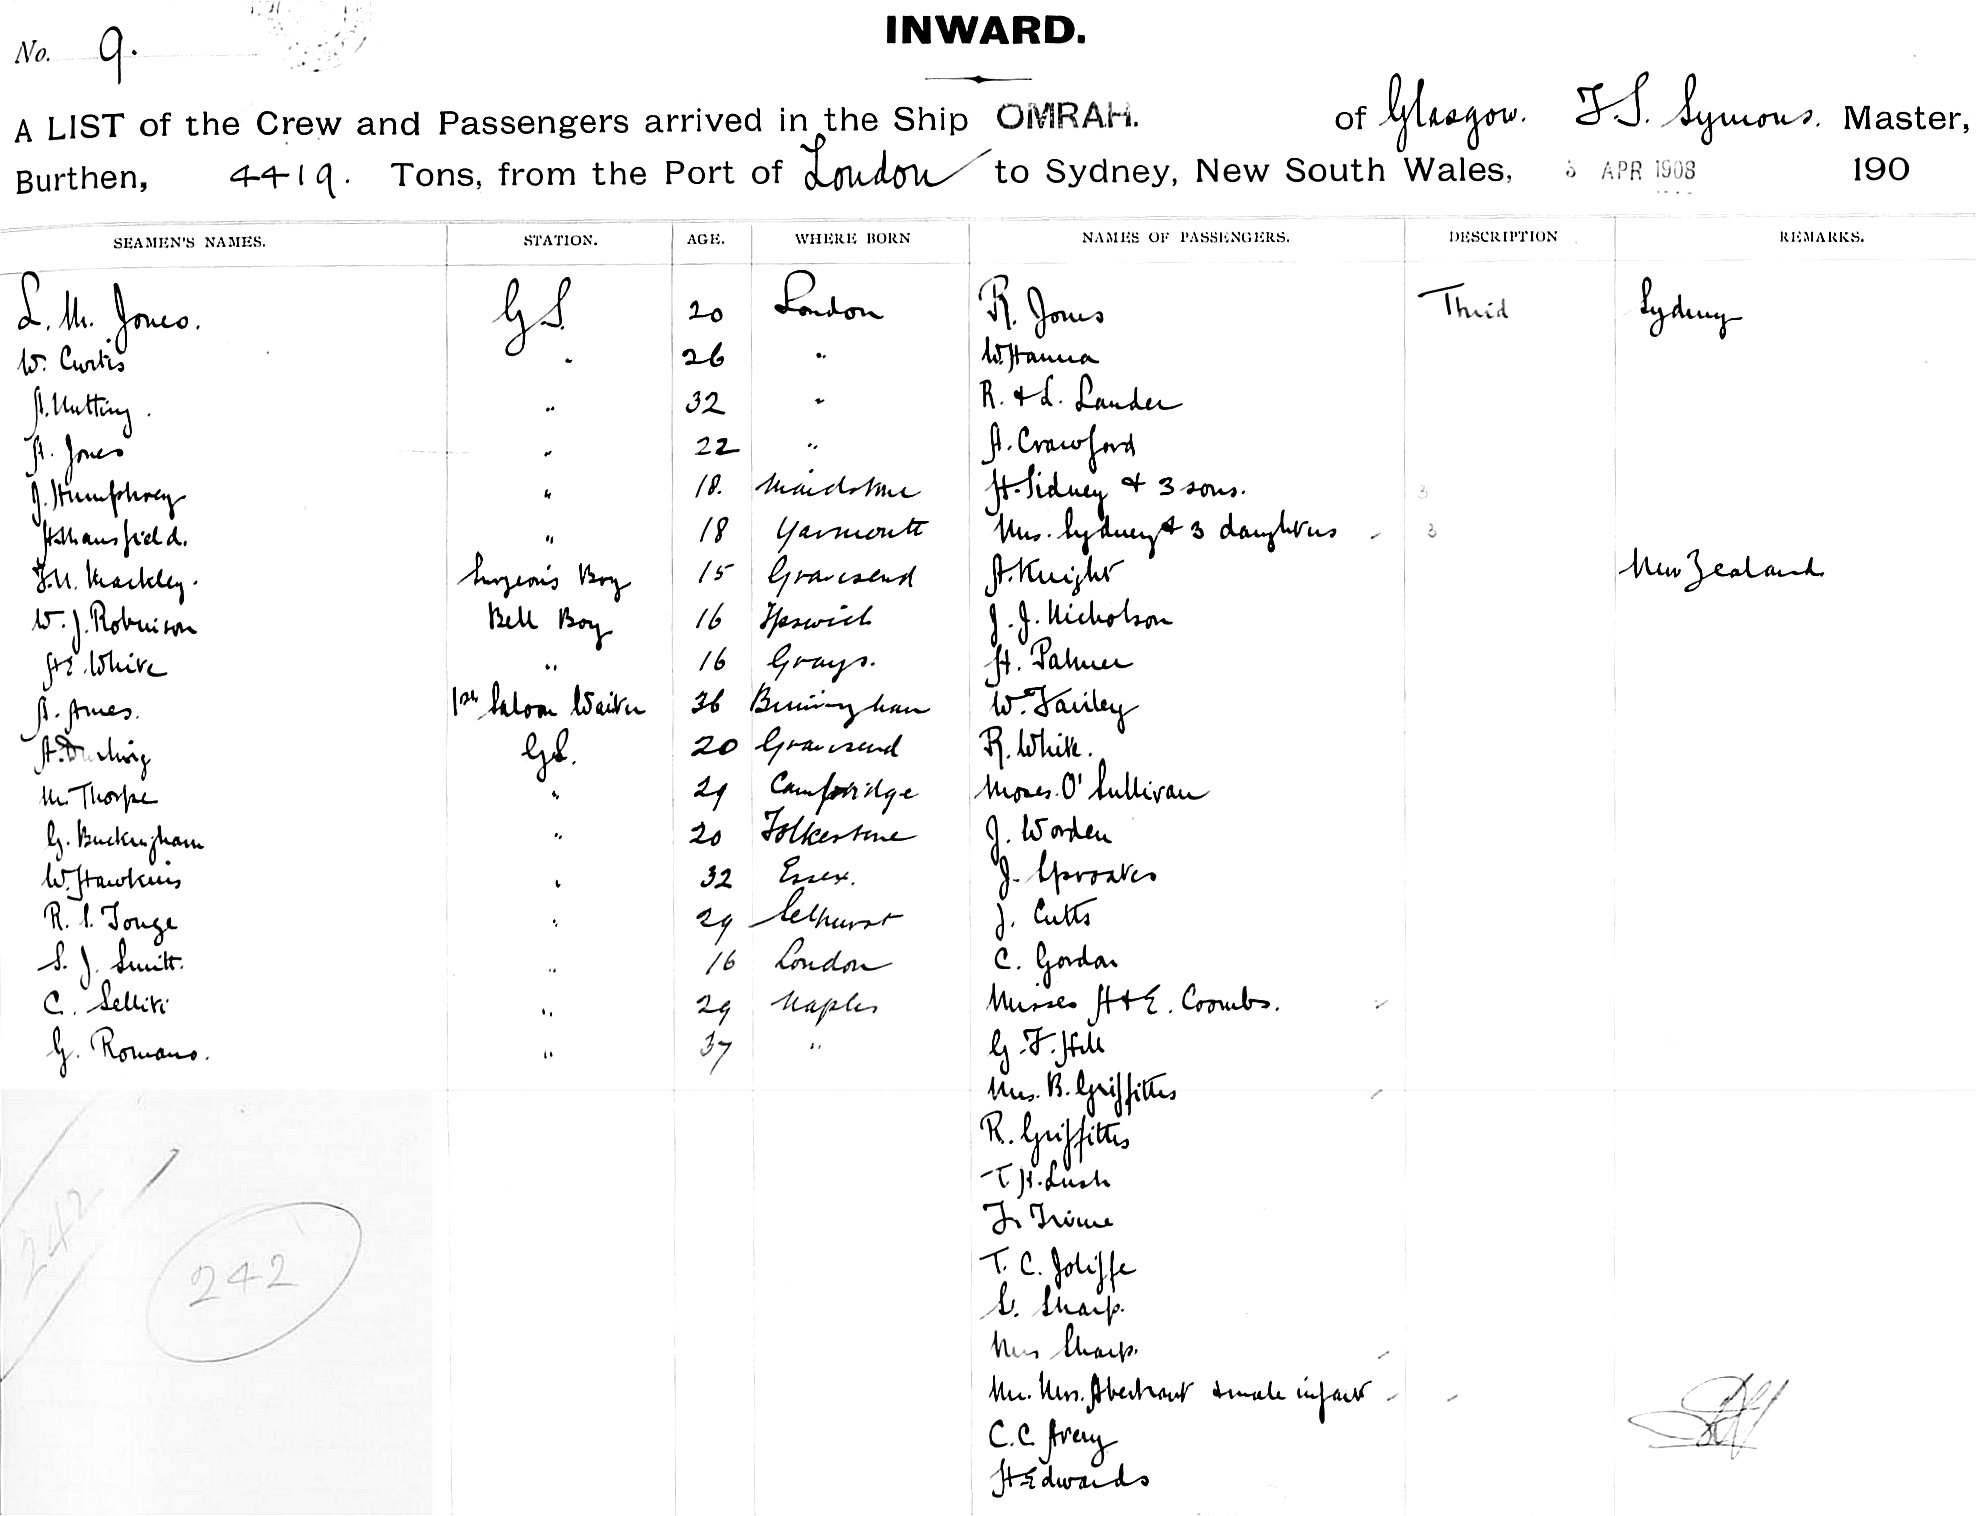 No. 9.
INWARD.
A LIST of the Crew and Passengers arrived in the Ship OMRAH. of Glasgow. F.S. Symons. Master,
Burthen, 4419. Tons, from the Port of London to Sydney, New South Wales, APR 1908 190
SEAMEN'S NAMES. STATION. AGE. WHERE BORN NAMES OF PASSENGERS. DESCRIPTION REMARKS.
L. M. Jones. G S. 20 London R. Jones Third Sydney
W. Curtis " 26 " W. Hanna
A. Nutting. " 32 " R. & L. Lauder
A. Jones " 22 " A. Crawford
J. Humphrey " 18. Maidstone H. Sidney & 3 sons. 3
H. Mansfield. " 18 Yarmouth Mrs. Sydney & 3 daughters 3
F.N. Mackley. Surgeon's Boy 15 Gravesend A. Knight New Zealand
W. J. Robinson Bell Boy 16 Ipswich J. J. Nicholson
H E. White " 16 Grays. H. Palmer
A. Ames. 1st Saloon Waiter 36 Birmingham W. Fairley
A. GS. 20 Gravesend R. White.
M. Thorpe " 29 Cambridge Moses. O'Sullivan
G. Buckingham " 20 Folkestone J. Worden
W. Hawkins " 32 Essex. J. Sproates
R. S. Tonge " 29 Selhurst J. Cutts
S. J. Smith. " 16 London C. Gordon
C. Selliti " 29 Naples Misses H & E. Coombs.
G. Romano. " 37 " G. F. Hill
Mrs. B. Griffiths
R. Griffiths
T. H. Lush
F. Frime
T. C. Joliffe
S. Sharp.
Mrs Sharp.
Mr. Mrs. & male infant
C. C. Avery
H Edwards
242
242